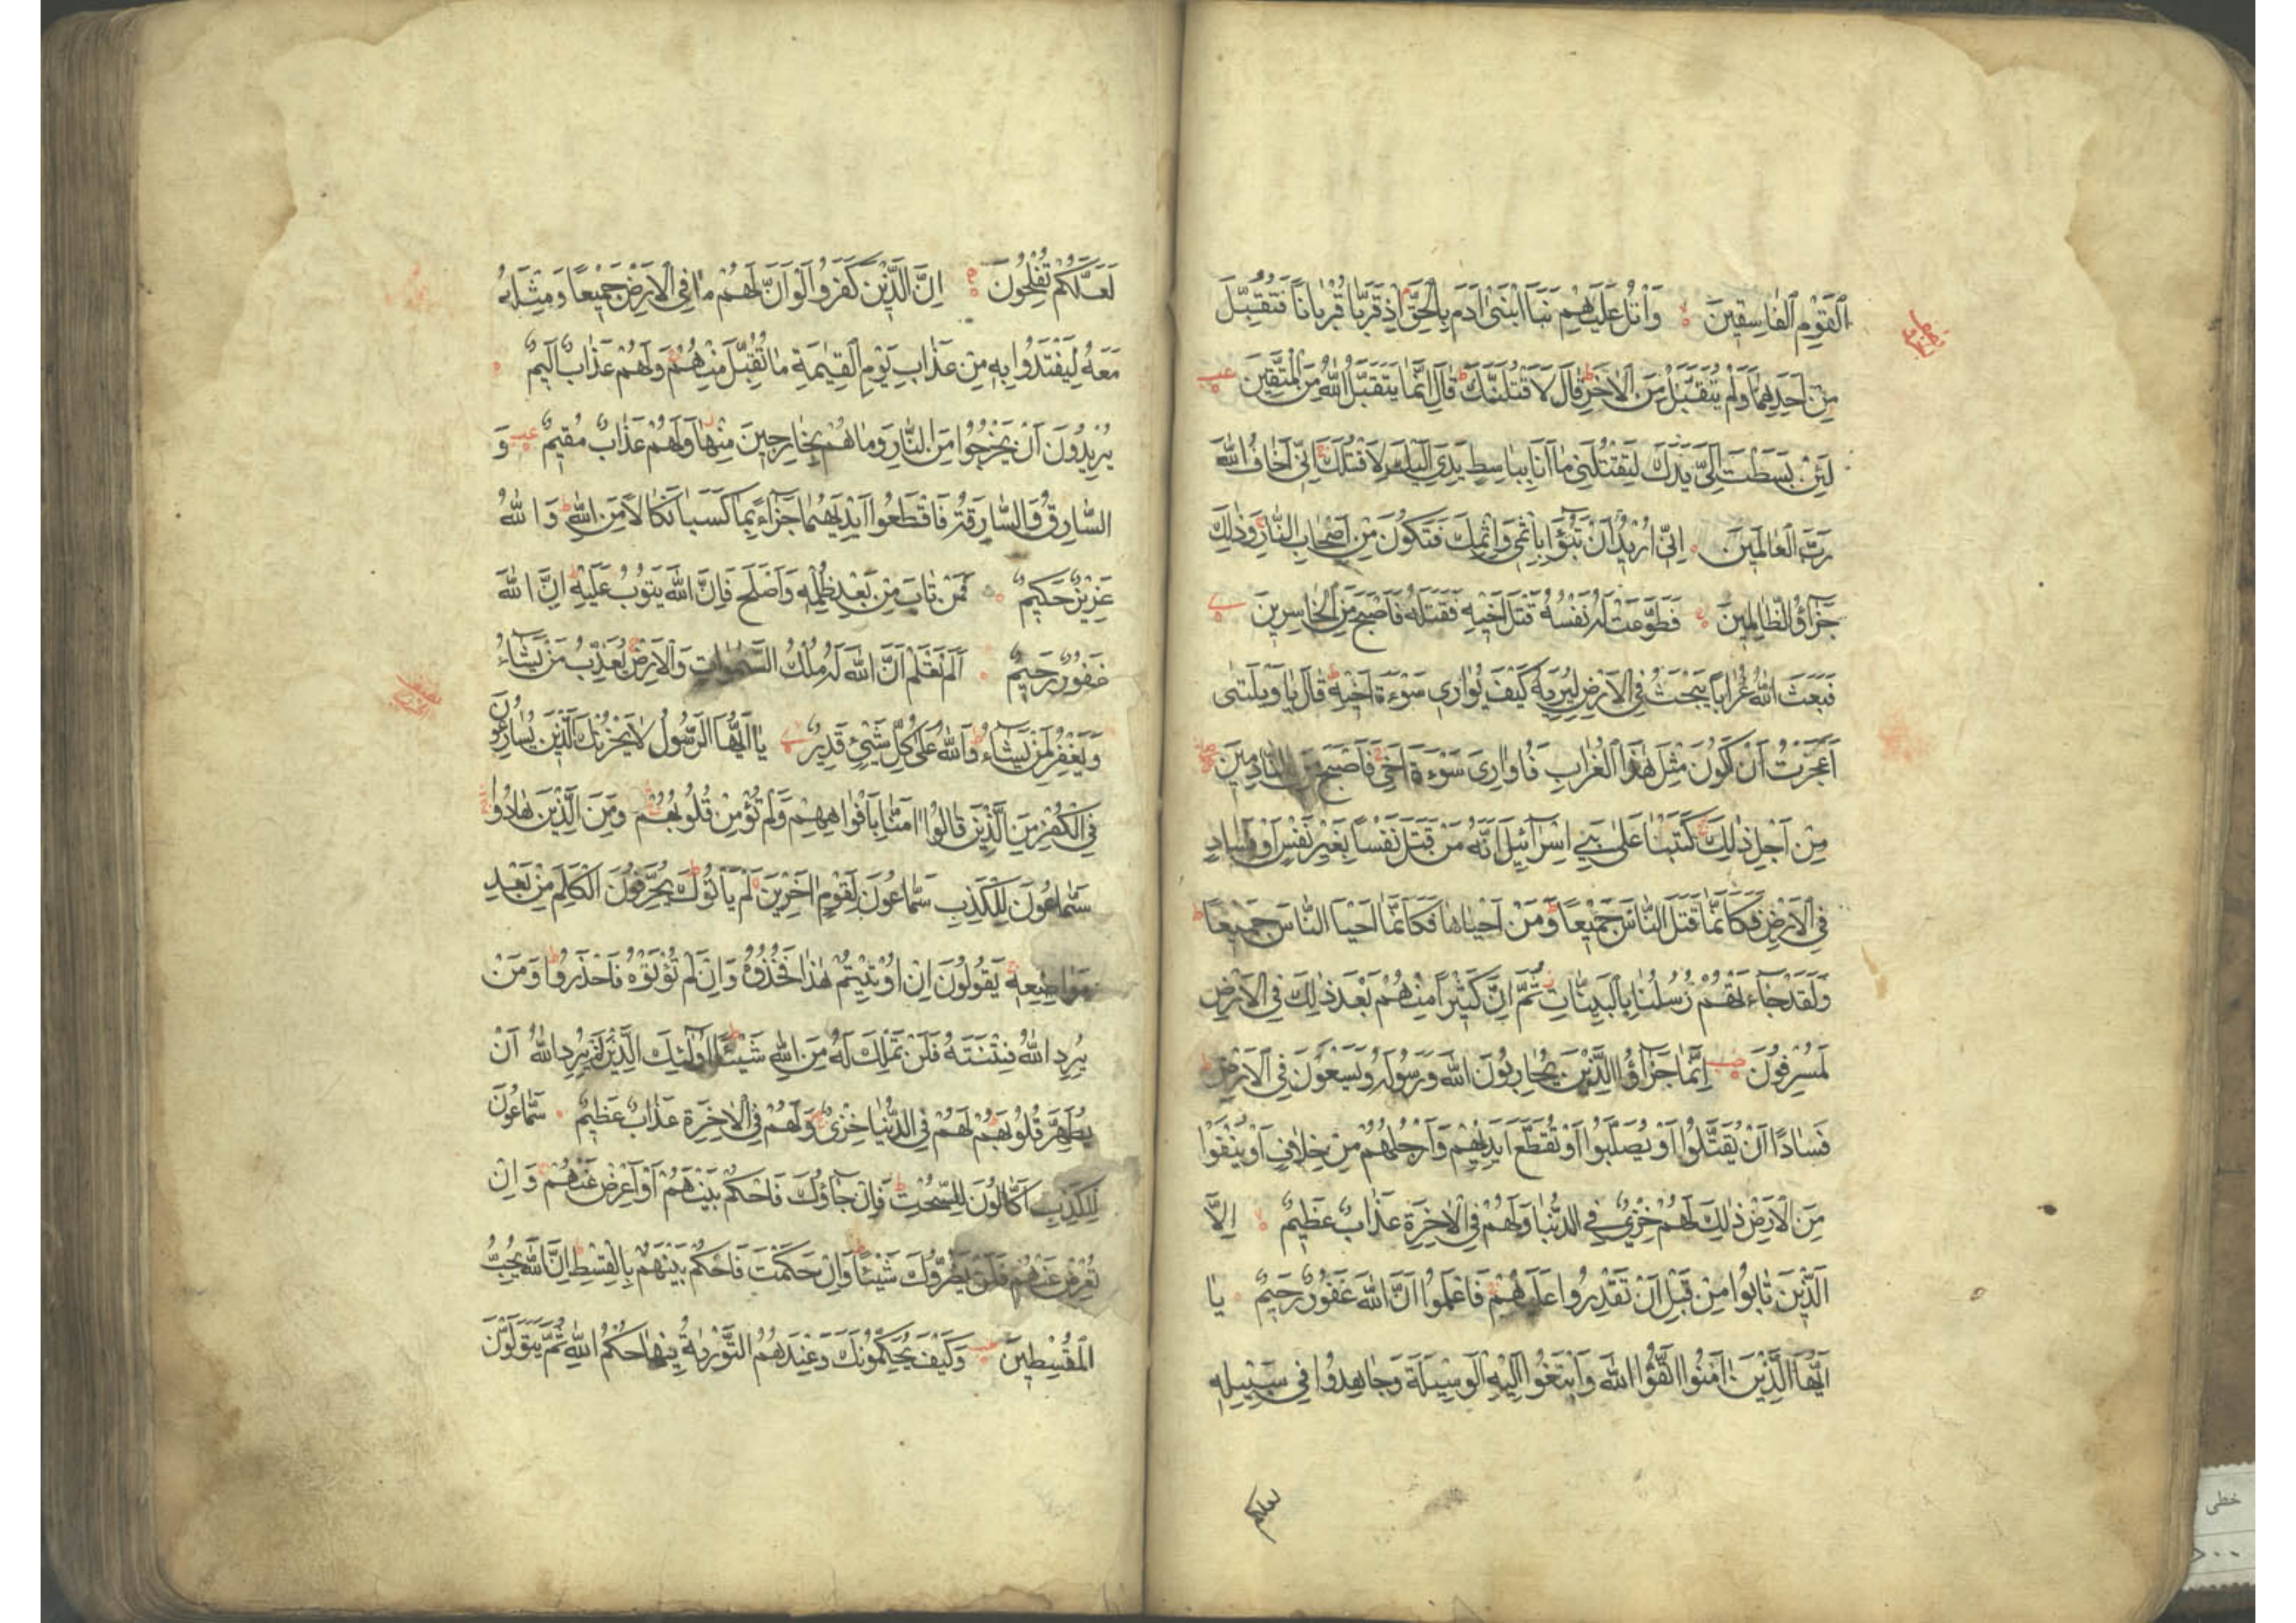 اَلْقَوْمِ الْفَاسِقِينَ وَاتْلُ عَلَيْهِمْ نَبَأَ ابْنَيْ اٰدَمَ بِالْحَقِّ اِذْ قَرَّبَا قُرْبَانًا فَتُقُبِّلَ
مِنْ اَحَدِهِمَا وَلَمْ يُتَقَبَّلْ مِنَ الْاٰخَرِ قَالَ لَاَقْتُلَنَّكَ قَالَ اِنَّمَا يَتَقَبَّلُ اللّٰهُ مِنَ الْمُتَّقِينَ
لَئِنْ بَسَطْتَ اِلَىَّ يَدَكَ لِتَقْتُلَنِي مَا اَنَا بِبَاسِطٍ يَدِيَ اِلَيْكَ لِاَقْتُلَكَ اِنِّي اَخَافُ اللّٰهَ
رَبَّ الْعَالَمِينَ اِنِّي اُرِيدُ اَنْ تَبُوٓاَ بِاِثْمِي وَاِثْمِكَ فَتَكُونَ مِنْ اَصْحَابِ النَّارِ وَذٰلِكَ
جَزَآؤُ الظَّالِمِينَ فَطَوَّعَتْ لَهُ نَفْسُهُ قَتْلَ اَخِيهِ فَقَتَلَهُ فَاَصْبَحَ مِنَ الْخَاسِرِينَ
فَبَعَثَ اللّٰهُ غُرَابًا يَبْحَثُ فِي الْاَرْضِ لِيُرِيَهُ كَيْفَ يُوَارِي سَوْءَةَ اَخِيهِ قَالَ يَا وَيْلَتٰى
اَعَجَزْتُ اَنْ اَكُونَ مِثْلَ هٰذَا الْغُرَابِ فَاُوَارِيَ سَوْءَةَ اَخِي فَاَصْبَحَ مِنَ النَّادِمِينَ
مِنْ اَجْلِ ذٰلِكَ كَتَبْنَا عَلٰى بَنِي اِسْرَآئِيلَ اَنَّهُ مَنْ قَتَلَ نَفْسًا بِغَيْرِ نَفْسٍ اَوْ فَسَادٍ
فِي الْاَرْضِ فَكَاَنَّمَا قَتَلَ النَّاسَ جَمِيعًا وَمَنْ اَحْيَاهَا فَكَاَنَّمَا اَحْيَا النَّاسَ جَمِيعًا
وَلَقَدْ جَآءَتْهُمْ رُسُلُنَا بِالْبَيِّنَاتِ ثُمَّ اِنَّ كَثِيرًا مِنْهُمْ بَعْدَ ذٰلِكَ فِي الْاَرْضِ
لَمُسْرِفُونَ اِنَّمَا جَزَآؤُ الَّذِينَ يُحَارِبُونَ اللّٰهَ وَرَسُولَهُ وَيَسْعَوْنَ فِي الْاَرْضِ
فَسَادًا اَنْ يُقَتَّلُوا اَوْ يُصَلَّبُوا اَوْ تُقَطَّعَ اَيْدِيهِمْ وَاَرْجُلُهُمْ مِنْ خِلَافٍ اَوْ يُنْفَوْا
مِنَ الْاَرْضِ ذٰلِكَ لَهُمْ خِزْيٌ فِي الدُّنْيَا وَلَهُمْ فِي الْاٰخِرَةِ عَذَابٌ عَظِيمٌ اِلَّا
الَّذِينَ تَابُوا مِنْ قَبْلِ اَنْ تَقْدِرُوا عَلَيْهِمْ فَاعْلَمُوا اَنَّ اللّٰهَ غَفُورٌ رَحِيمٌ يَا
اَيُّهَا الَّذِينَ اٰمَنُوا اتَّقُوا اللّٰهَ وَابْتَغُوا اِلَيْهِ الْوَسِيلَةَ وَجَاهِدُوا فِي سَبِيلِهِ
لعلكم
لَعَلَّكُمْ تُفْلِحُونَ اِنَّ الَّذِينَ كَفَرُوا لَوْ اَنَّ لَهُمْ مَا فِي الْاَرْضِ جَمِيعًا وَمِثْلَهُ
مَعَهُ لِيَفْتَدُوا بِهِ مِنْ عَذَابِ يَوْمِ الْقِيٰمَةِ مَا تُقُبِّلَ مِنْهُمْ وَلَهُمْ عَذَابٌ اَلِيمٌ
يُرِيدُونَ اَنْ يَخْرُجُوا مِنَ النَّارِ وَمَا هُمْ بِخَارِجِينَ مِنْهَا وَلَهُمْ عَذَابٌ مُقِيمٌ وَ
السَّارِقُ وَالسَّارِقَةُ فَاقْطَعُوا اَيْدِيَهُمَا جَزَآءً بِمَا كَسَبَا نَكَالًا مِنَ اللّٰهِ وَاللّٰهُ
عَزِيزٌ حَكِيمٌ فَمَنْ تَابَ مِنْ بَعْدِ ظُلْمِهِ وَاَصْلَحَ فَاِنَّ اللّٰهَ يَتُوبُ عَلَيْهِ اِنَّ اللّٰهَ
غَفُورٌ رَحِيمٌ اَلَمْ تَعْلَمْ اَنَّ اللّٰهَ لَهُ مُلْكُ السَّمٰوَاتِ وَالْاَرْضِ يُعَذِّبُ مَنْ يَشَآءُ
وَيَغْفِرُ لِمَنْ يَشَآءُ وَاللّٰهُ عَلٰى كُلِّ شَيْئٍ قَدِيرٌ يَا اَيُّهَا الرَّسُولُ لَا يَحْزُنْكَ الَّذِينَ يُسَارِعُونَ
فِي الْكُفْرِ مِنَ الَّذِينَ قَالُوا اٰمَنَّا بِاَفْوَاهِهِمْ وَلَمْ تُؤْمِنْ قُلُوبُهُمْ وَمِنَ الَّذِينَ هَادُوا
سَمَّاعُونَ لِلْكَذِبِ سَمَّاعُونَ لِقَوْمٍ اٰخَرِينَ لَمْ يَأْتُوكَ يُحَرِّفُونَ الْكَلِمَ مِنْ بَعْدِ
مَوَاضِعِهِ يَقُولُونَ اِنْ اُوتِيتُمْ هٰذَا فَخُذُوهُ وَاِنْ لَمْ تُؤْتَوْهُ فَاحْذَرُوا وَمَنْ
يُرِدِ اللّٰهُ فِتْنَتَهُ فَلَنْ تَمْلِكَ لَهُ مِنَ اللّٰهِ شَيْئًا اُولٰٓئِكَ الَّذِينَ لَمْ يُرِدِ اللّٰهُ اَنْ
يُطَهِّرَ قُلُوبَهُمْ لَهُمْ فِي الدُّنْيَا خِزْيٌ وَلَهُمْ فِي الْاٰخِرَةِ عَذَابٌ عَظِيمٌ سَمَّاعُونَ
لِلْكَذِبِ اَكَّالُونَ لِلسُّحْتِ فَاِنْ جَآؤُكَ فَاحْكُمْ بَيْنَهُمْ اَوْ اَعْرِضْ عَنْهُمْ وَاِنْ
تُعْرِضْ عَنْهُمْ فَلَنْ يَضُرُّوكَ شَيْئًا وَاِنْ حَكَمْتَ فَاحْكُمْ بَيْنَهُمْ بِالْقِسْطِ اِنَّ اللّٰهَ يُحِبُّ
الْمُقْسِطِينَ وَكَيْفَ يُحَكِّمُونَكَ وَعِنْدَهُمُ التَّوْرٰيةُ فِيهَا حُكْمُ اللّٰهِ ثُمَّ يَتَوَلَّوْنَ
خطی